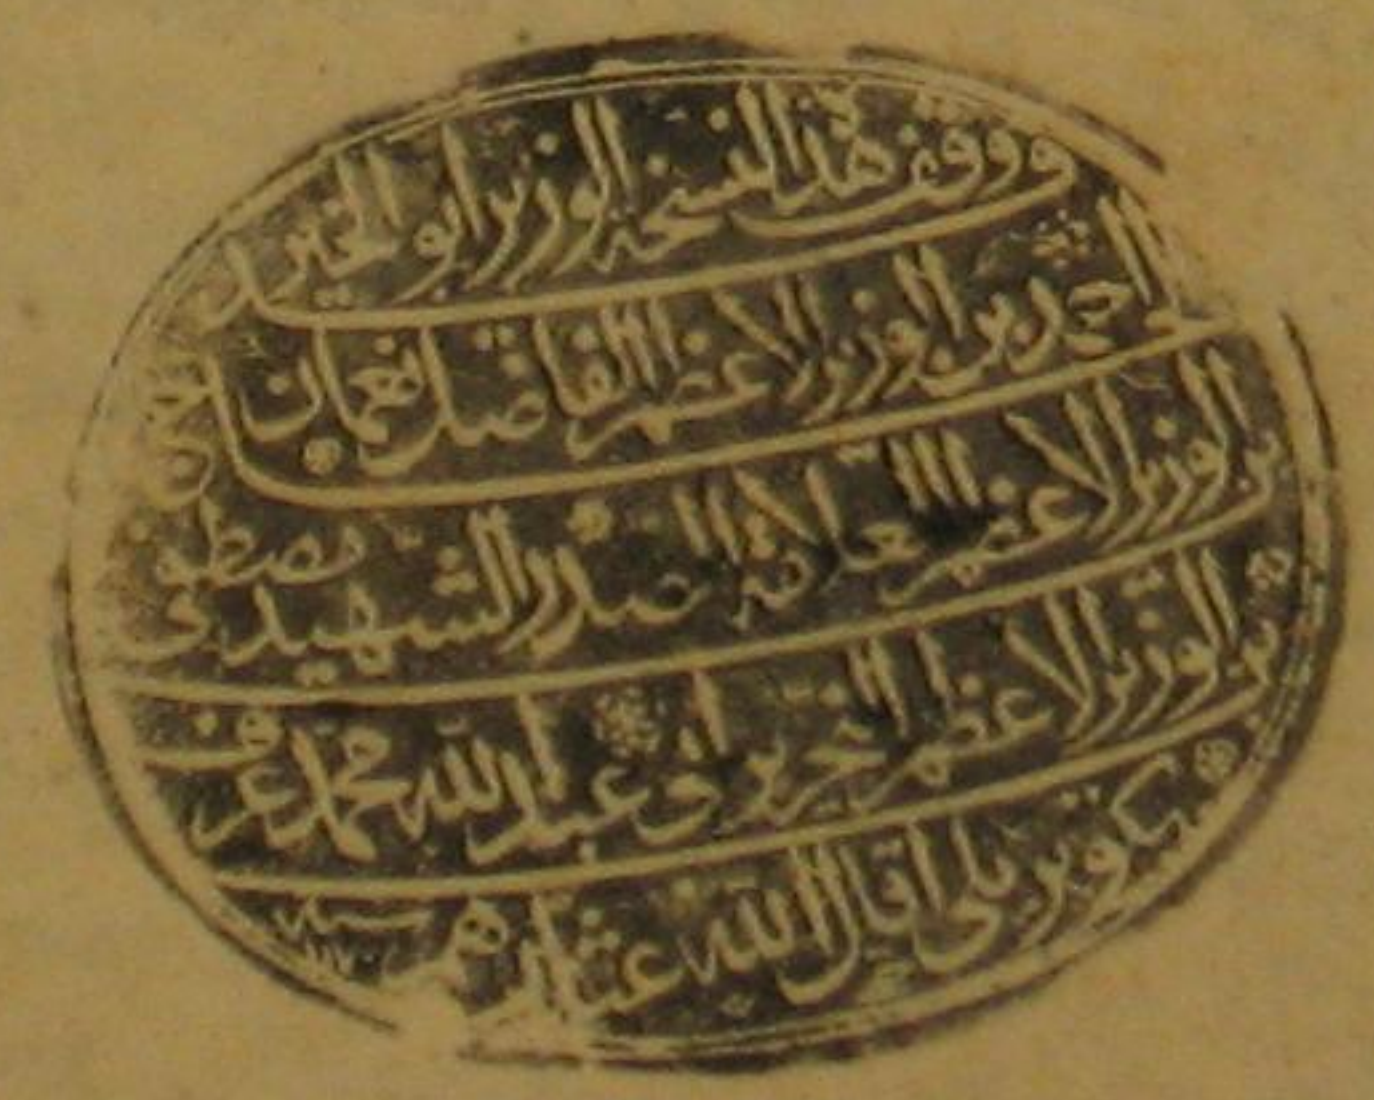 ووقف هذا النسخة الوزير ابو الخير
الحاج احمد بن الوزير الاعظم الفاضل نعمان
بن الوزير الاعظم العلامة الصدر الشهيد مصطفى
بن الوزير الاعظم النحرير ابى عبد الله محمد عرف
بكوپريلى اقال الله عثارهم سنه